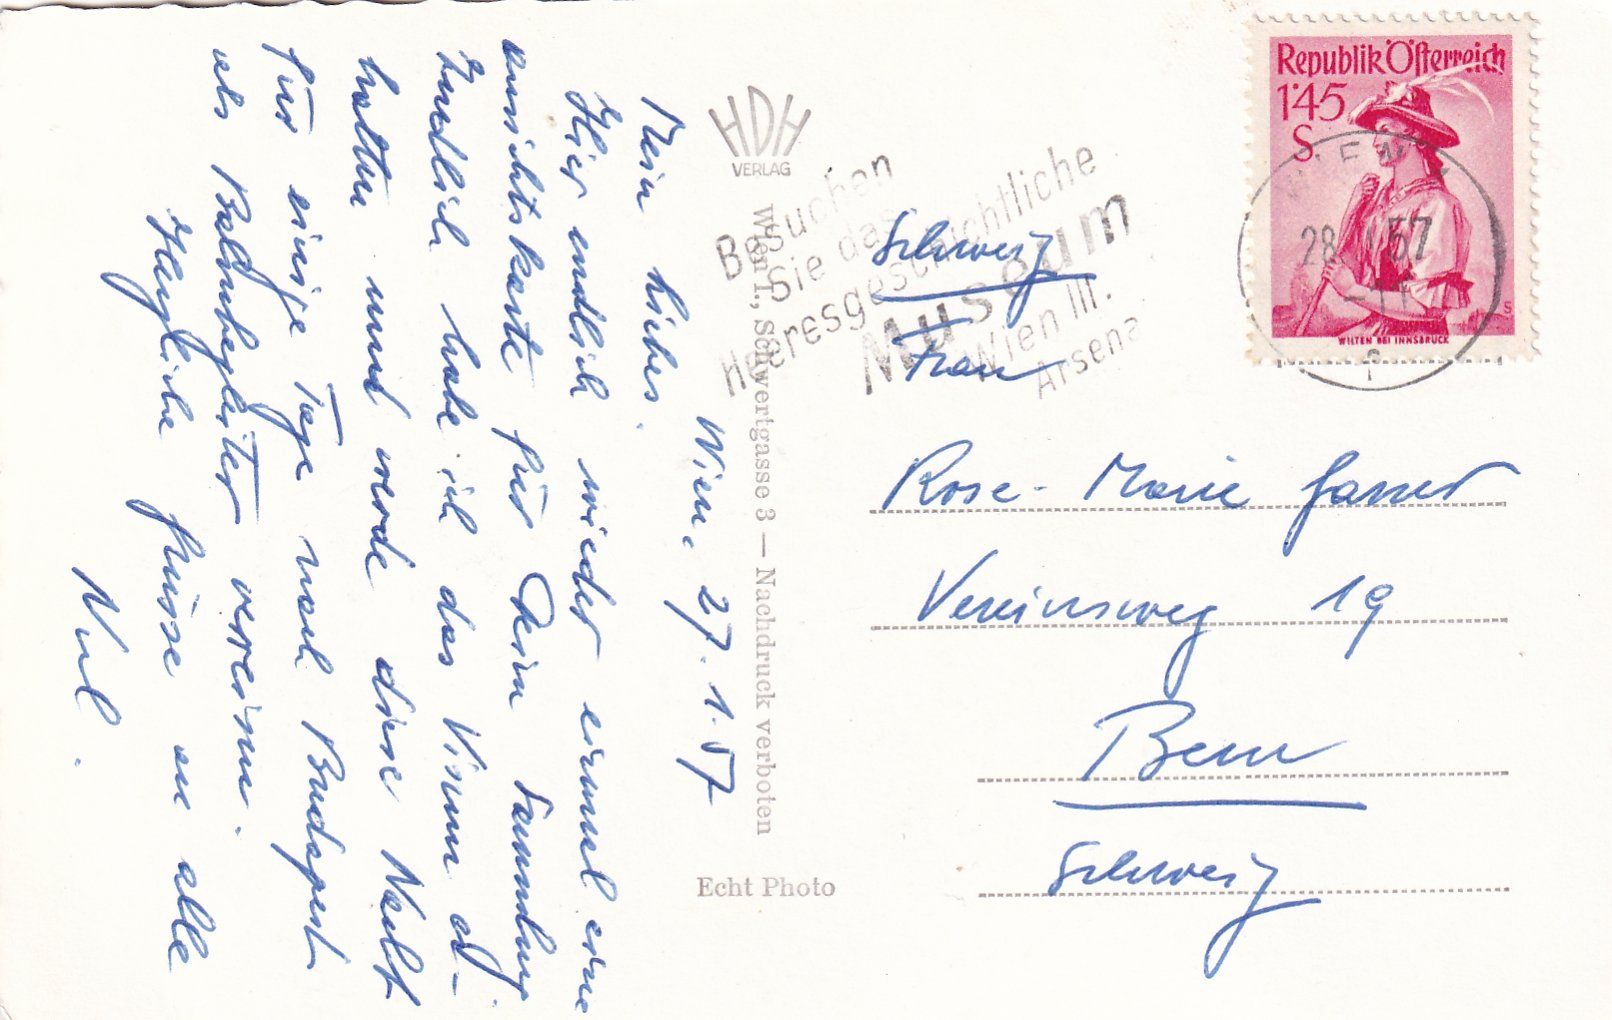 Wien, 27.1.57
Mein liebes.
Hier endlich wieder einmal eine
Ansichtskarte für Dein Sammlung
Endlich habe ich das Visum er-
halten und werde diese Nacht
für einige Tage nach Budapest
als Bahnbegleiter verreisen.
Herzliche Grüsse an alle
HDH
VERLAG
Wien I., Schwertgasse 3 — Nachdruck verboten
Echt Photo
Besuchen
Sie das
Heeresgeschichtliche
Museum
Wien III.
Arsenal
Republik Österreich
1'45
S
WILTEN BEI INNSBRUCK
WIEN
28. 57
Schweiz
Frau
Rose-Marie Gasser
Vereinsweg 19
Bern
Schweiz